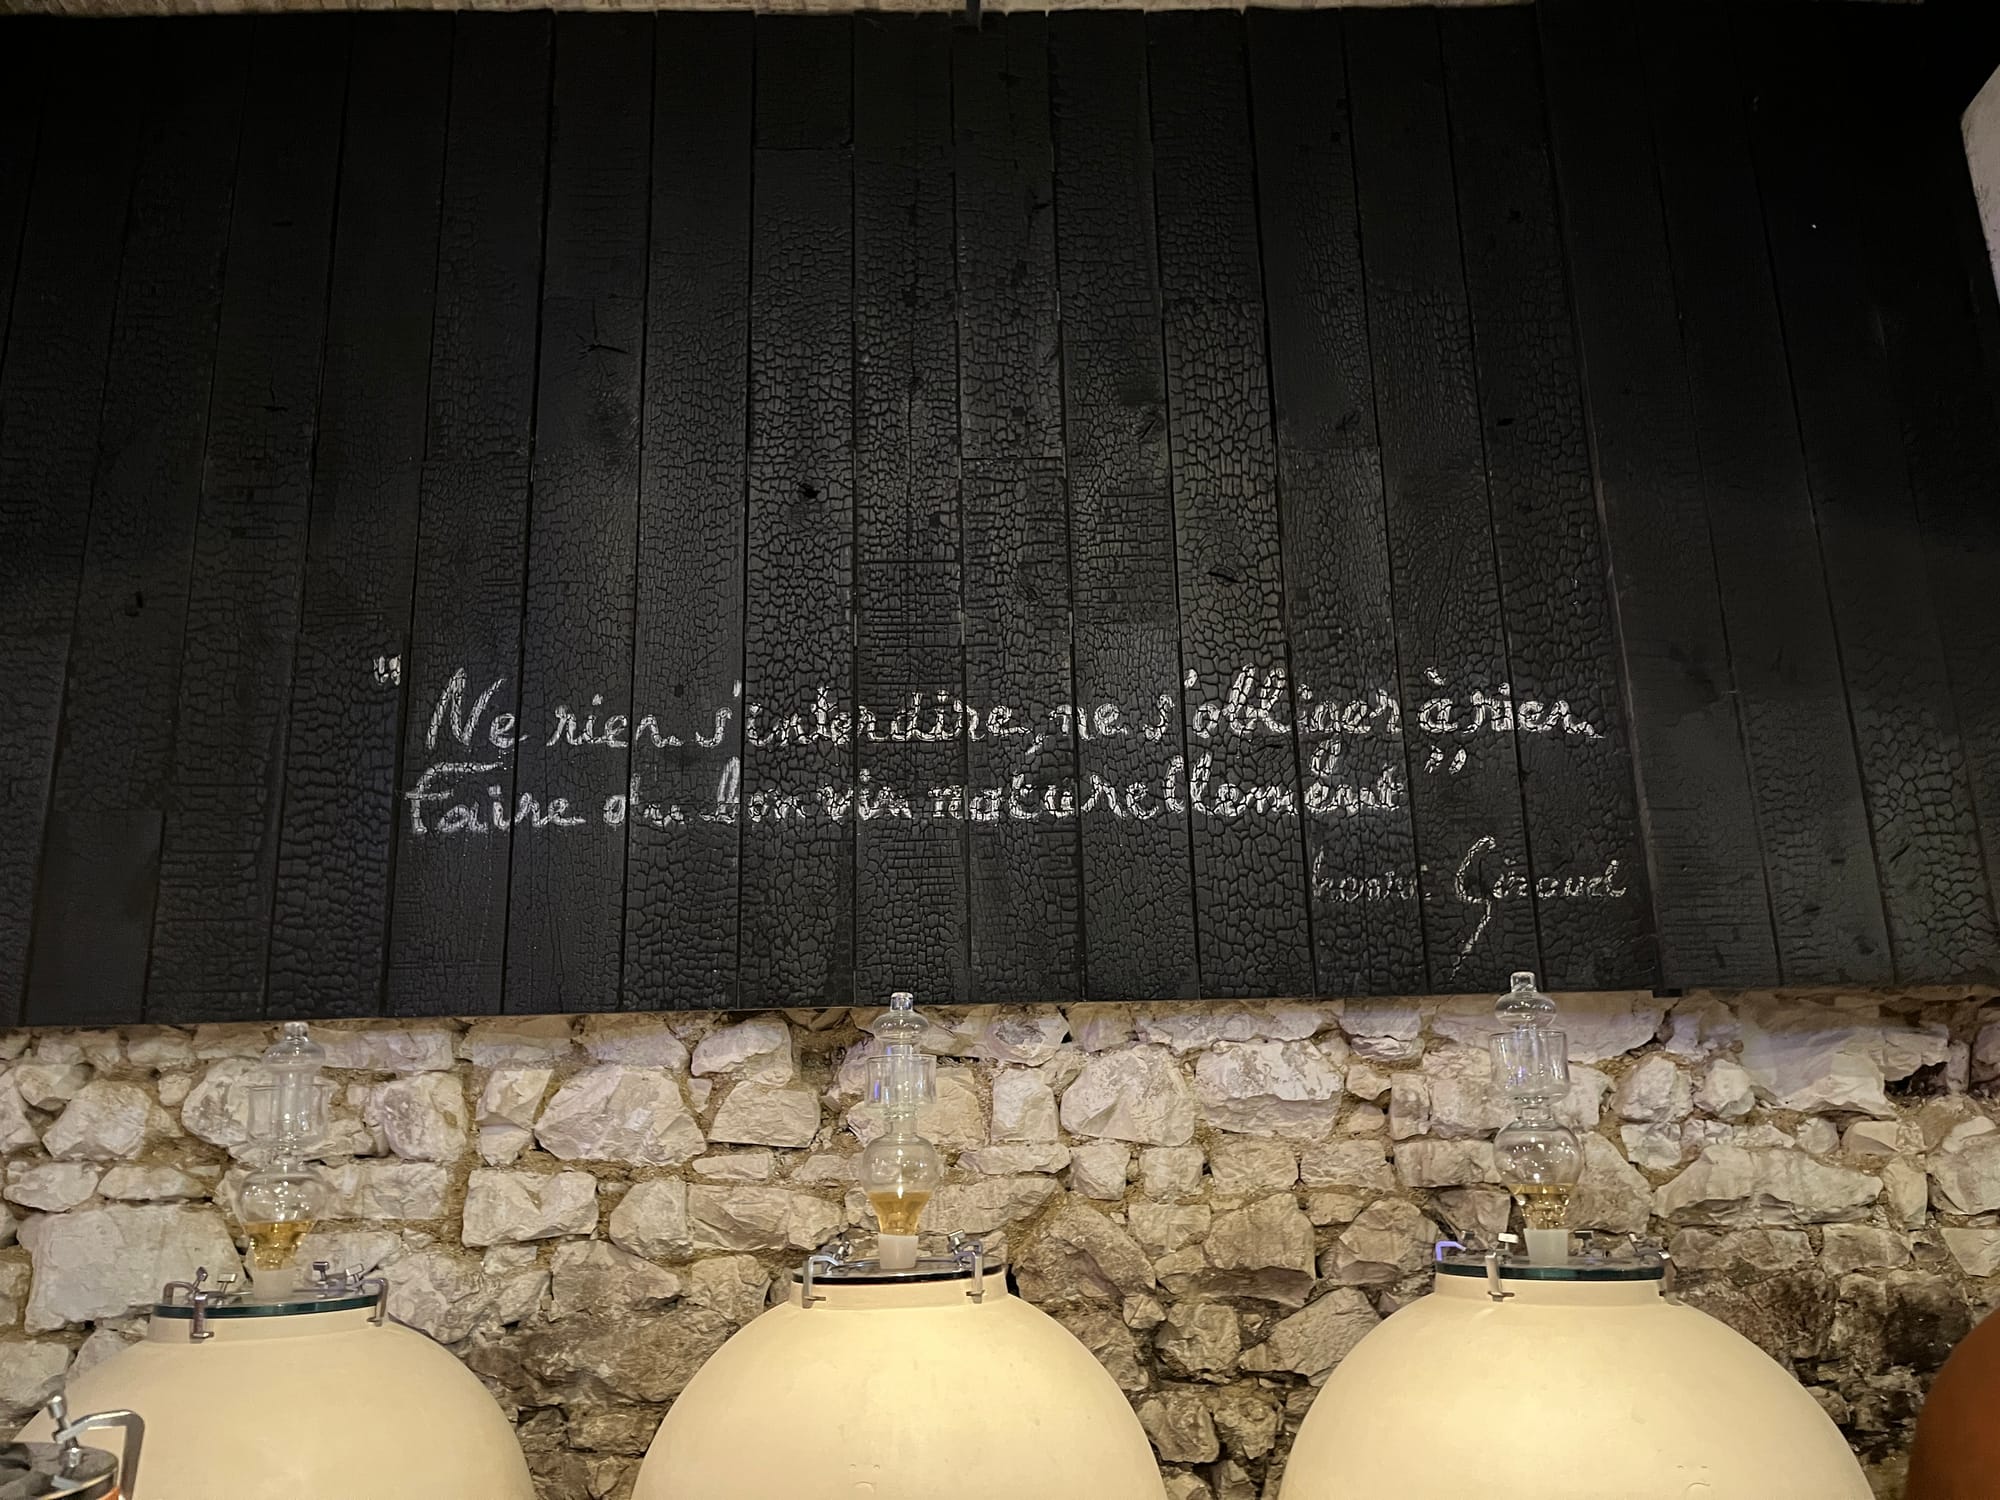 "Ne rien s'interdire, ne s'obliger à rien
Faire du bon vin naturellement"
henri Giraud